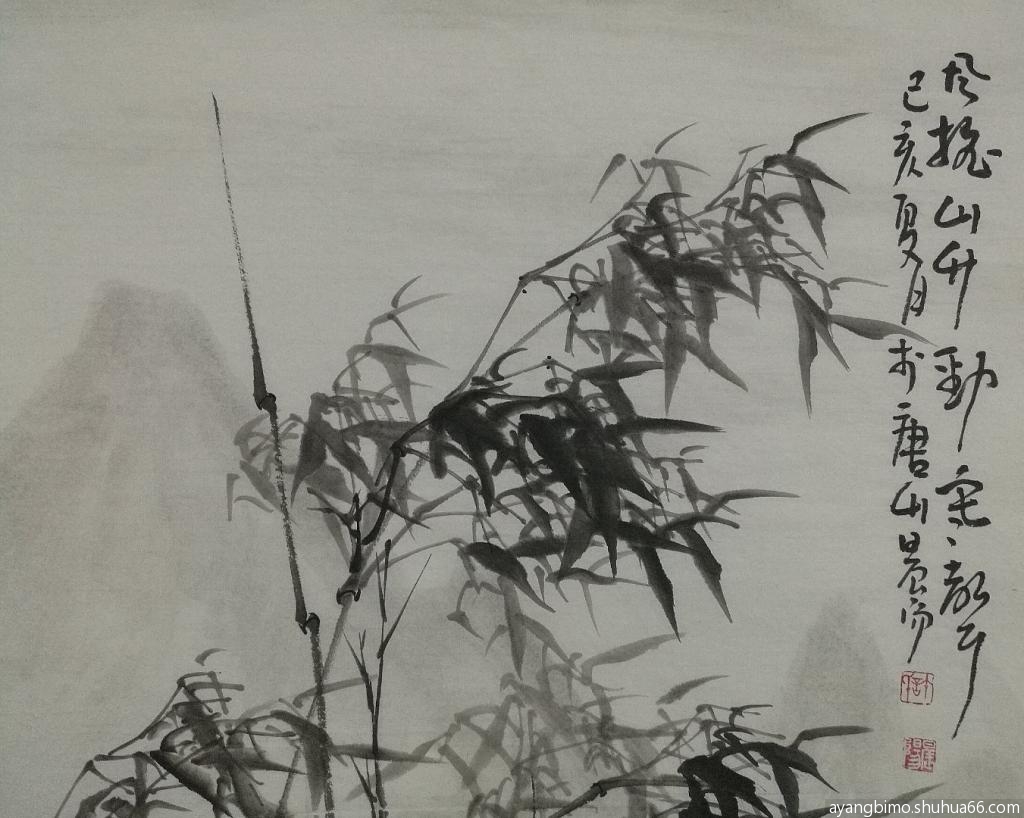 风摇山竹劲寒聲
己亥夏月於唐山
ayangbimo.shuhua66.com